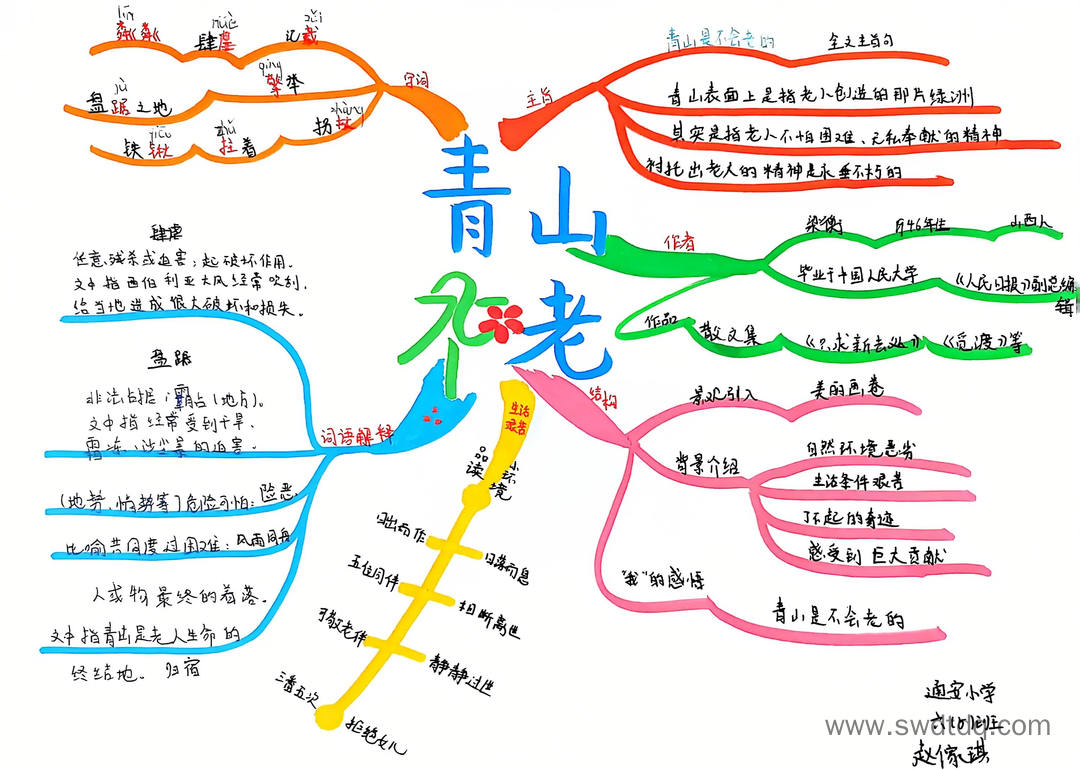 青山不老
字词
lín
粼粼
nüè
肆虐
zǎi
记载
jù
盘踞之地
qíng
擎举
qiāo
铁锹
zhǔ
拄着
zhàng
拐杖
主旨
青山是不会老的
全文主旨句
青山表面上是指老人创造的那片绿洲
其实是指老人不怕困难、无私奉献的精神
衬托出老人的精神是永垂不朽的
作者
梁衡
1946年生
山西人
毕业于中国人民大学
《人民日报》副总编辑
作品
散文集
《只求新去处》
《觅渡》等
结构
景观引入
美丽画卷
背景介绍
自然环境恶劣
生活条件艰苦
了不起的奇迹
感受到巨大贡献
"我"的感悟
青山是不会老的
生活
艰苦
品读
小环境
日出而作
日落而息
五位同伴
相断离世
可敬老伴
静静过世
三番五次
拒绝女儿
词语解释
肆虐
任意残杀或迫害；起破坏作用。
文中指西伯利亚大风经常吹刮，
给当地造成很大破坏和损失。
盘踞
非法占据；霸占（地方）。
文中指经常受到干旱、
霜冻、沙尘暴的迫害。
（地势、情势等）危险可怕：险恶
比喻共同度过困难：风雨同舟
人或物最终的着落。
文中指青山是老人生命的
终结地。 归宿
通安小学
www.swdtdq.com